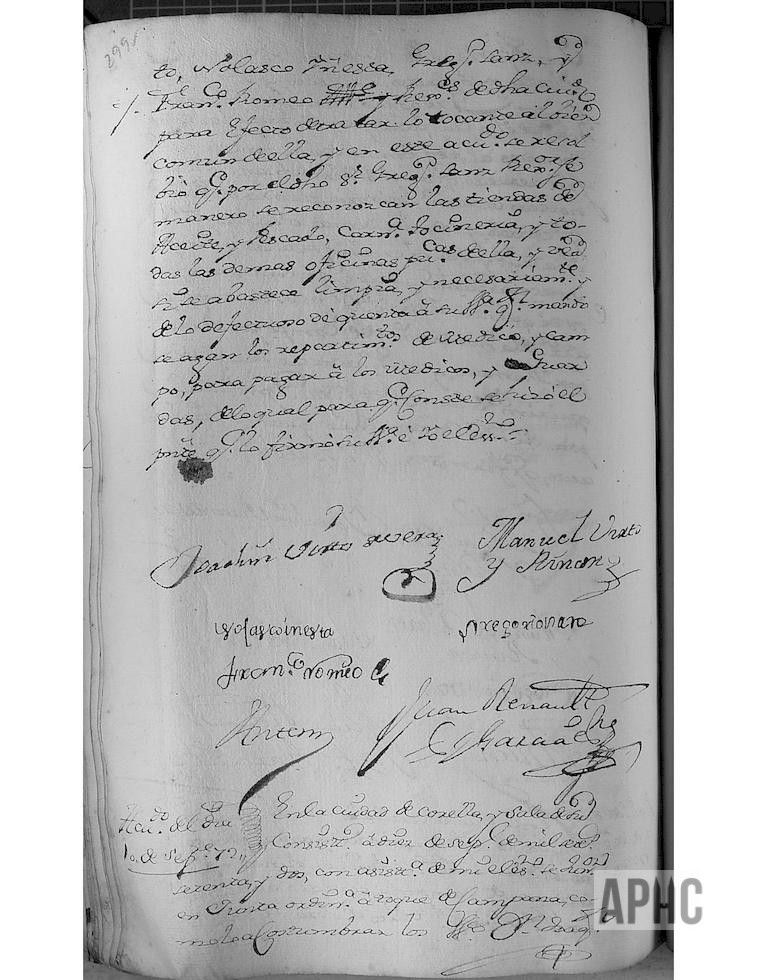 299v
to, Nolasco Yñesta, Greg.º Sanz, y
Fran.co Romeo y Rex.s de dha Ciu.d
para efecto de tratar lo tocante al bien
comun de ella, y en este acu.do se resol
bió q.e por el dho s.r Greg.º Sanz Rex.or se
manero se reconozcan las tiendas de
Aceite, y Pescado, Carn.a tocineria, y to-
das las demas oficinas pu.cas de ella, y
si se abastece limpia, y necesariam.te y
de lo defectuoso dé quenta á su
se agan los repartim.tos de Medico, y Cam
po, para pagar á los Medicos, y Guar
das, de lo qual para q.e Conste se hizo el
pnte q.e lo firmó su é Yo el Ess.no
Joachin Virto de Vera
Manuel Virto
y Rincon
Nolasco inesta
Gregorio sanz
Fran.co romeo
Antemi
Juan Renault
y Garcia
Acu.do del dia
10 de Sep.re 72
En la ciudad de Corella, y Sala de su
Consist.o á diez de Sep.e de mil sets.
setenta, y dos, con asist.a de mi el es.no se
en Junta ordin.a á toque de Campana, co-
mo lo aCostumbran los SS.s D.n Joaq.n
APHC